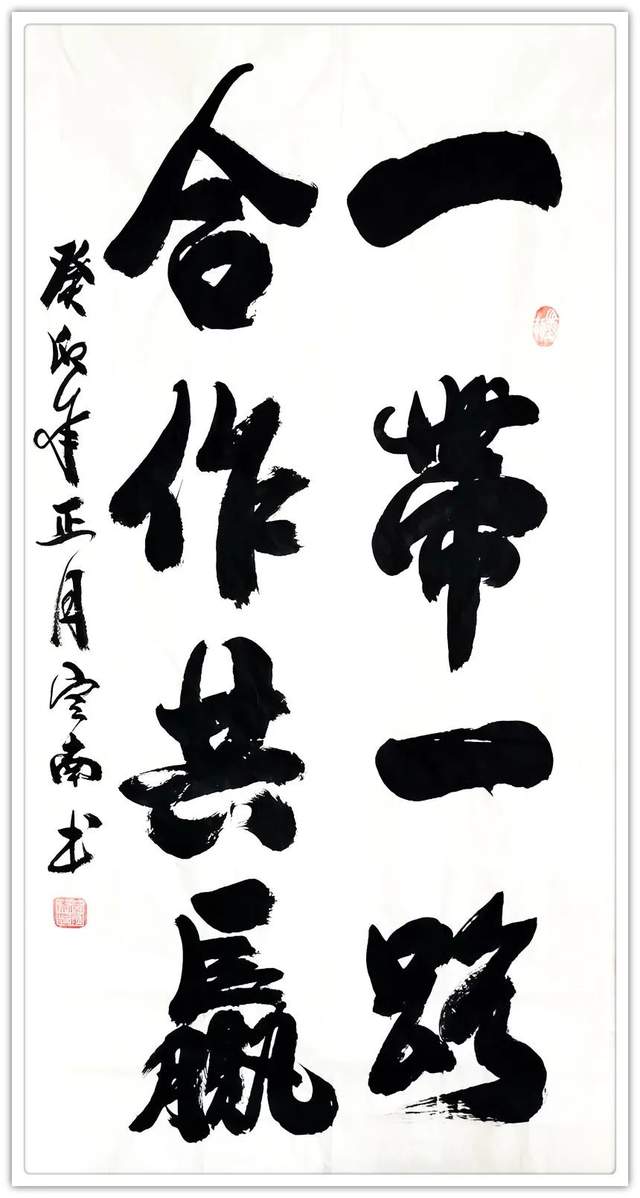 一带一路
合作共赢
癸卯年正月宏南书